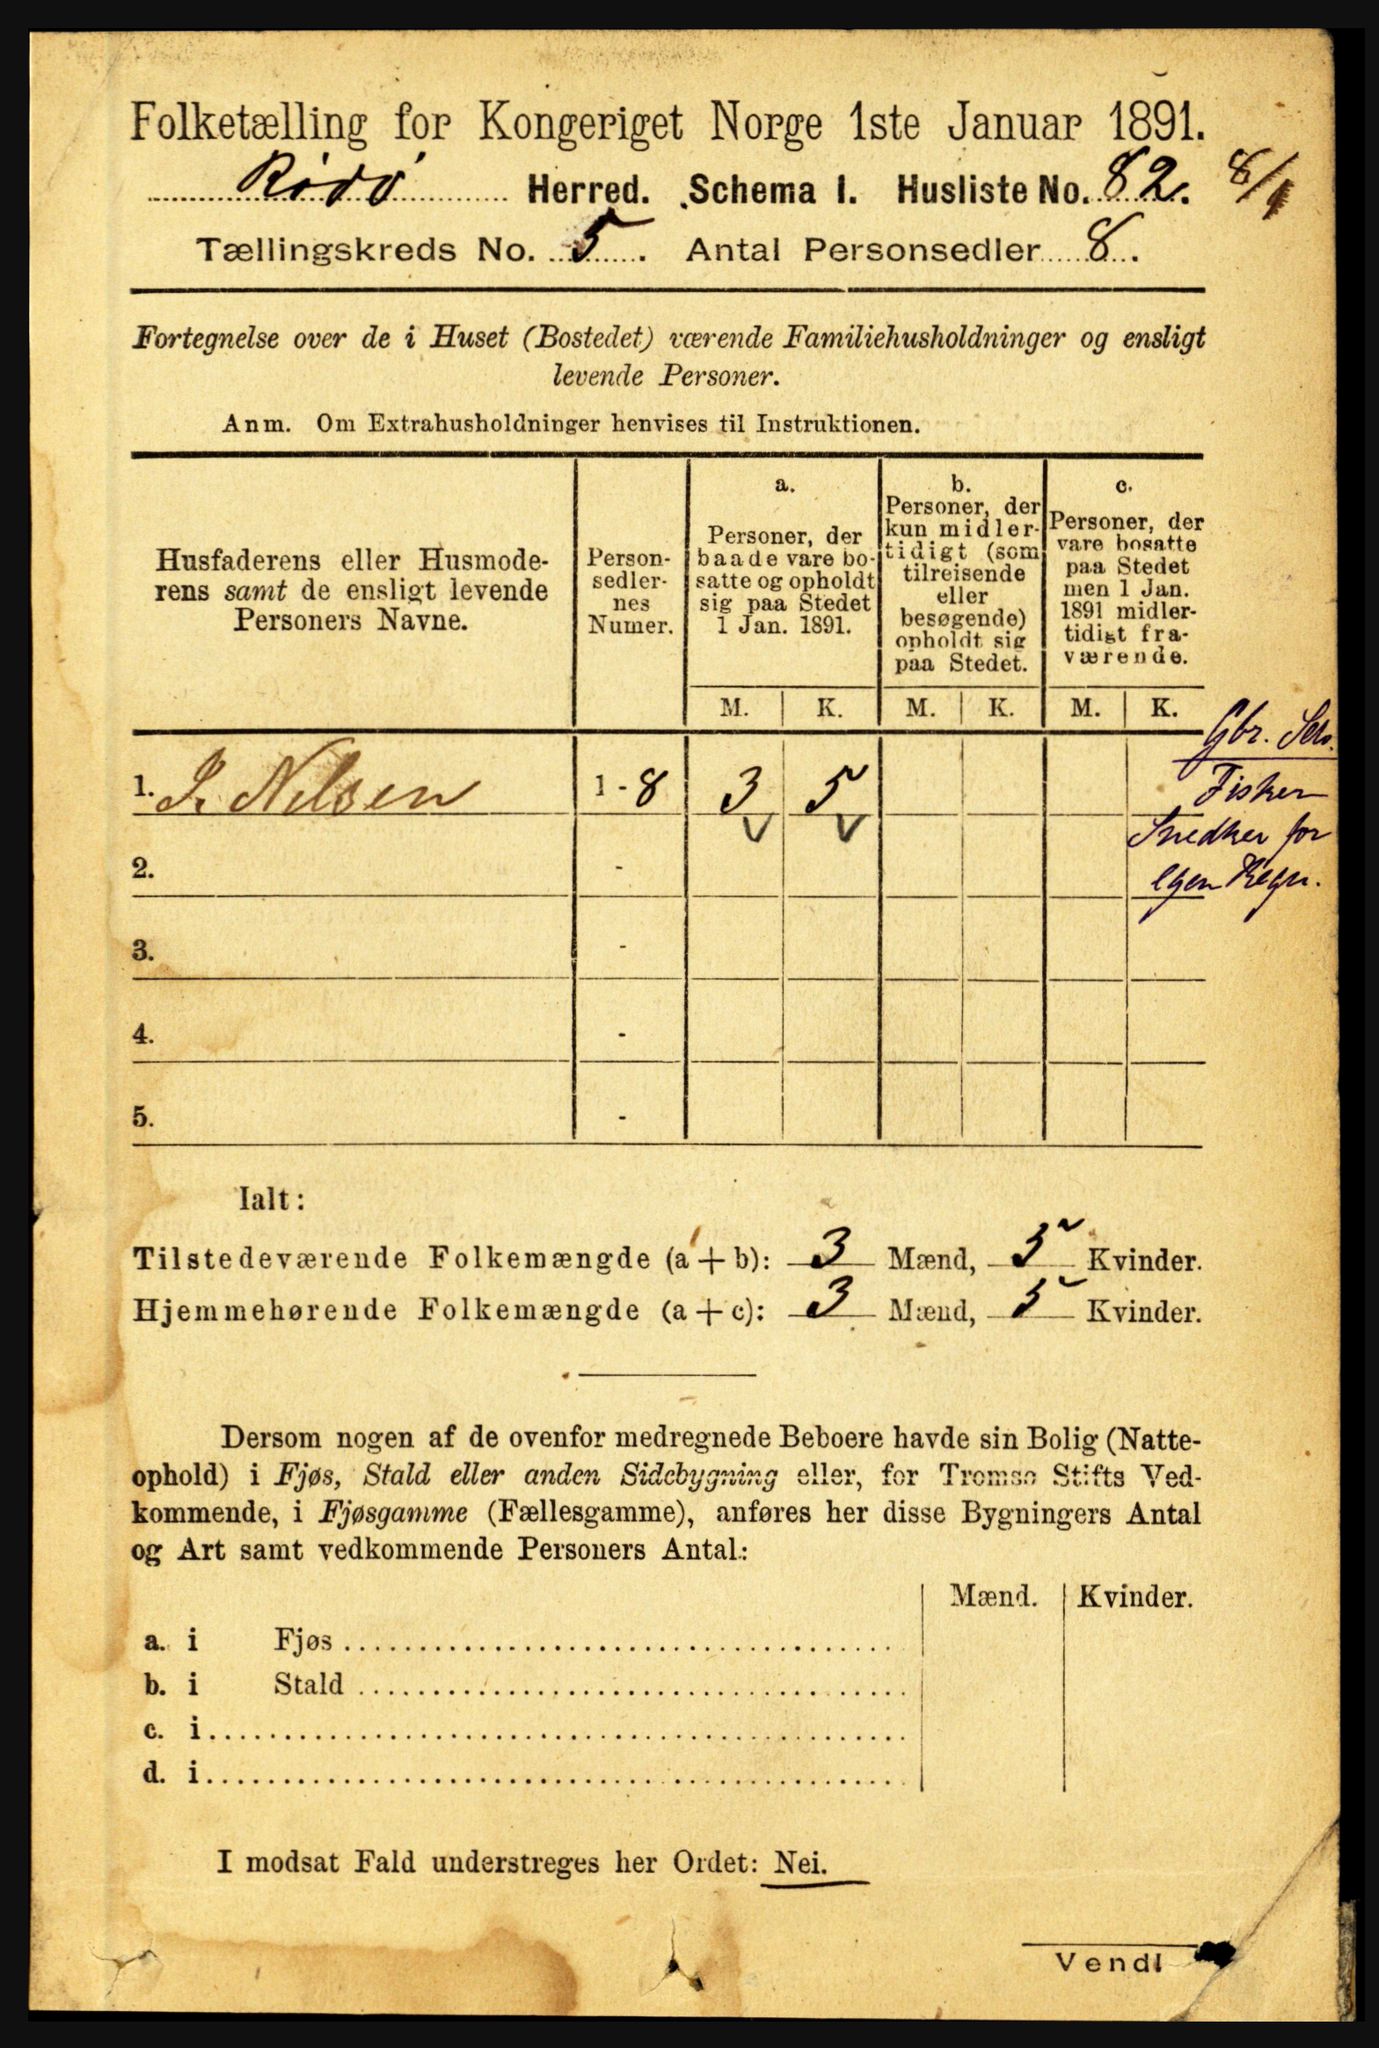 Folketælling for Kongeriget Norge 1ste Januar 1891.
Rödö Herred. Schema 1. Husliste No. 82. 8/1
Tællingskreds No. 5. Antal Personsedler 8.
Fortegnelse over de i Huset (Bostedet) værende Familiehusholdninger og ensligt
levende Personer.
Anm. Om Extrahusholdninger henvises til Instruktionen.
Husfaderens eller Husmode-
rens samt de ensligt levende
Personers Navne.
Person-
sedler-
nes
Numer.
a.
Personer, der
baade vare bo-
satte og opholdt
sig paa Stedet
1 Jan. 1891.
b.
Personer, der
kun midler-
tidigt (som
tilreisende
eller
besøgende)
opholdt sig
paa Stedet.
c.
Personer, der
vare bosatte
paa Stedet
men 1 Jan.
1891 midler-
tidigt fra-
værende.
M. K. M. K. M. K.
Gbr. Selv.
Fisker
Snedker for
egen Regn.
1. J. Nilsen 1 - 8 3 5
2. -
3. -
4. -
5. -
Ialt:
Tilstedeværende Folkemængde (a + b): 3 Mænd, 5 Kvinder.
Hjemmehørende Folkemængde (a + c): 3 Mænd, 5 Kvinder.
Dersom nogen af de ovenfor medregnede Beboere havde sin Bolig (Natte-
ophold) i Fjøs, Stald eller anden Sidebygning eller, for Tromsø Stifts Ved-
kommende, i Fjøsgamme (Fællesgamme), anføres her disse Bygningers Antal
og Art samt vedkommende Personers Antal:
Mænd. Kvinder.
a. i Fjøs
b. i Stald
c. i
d. i
I modsat Fald understreges her Ordet: Nei.
Vend!